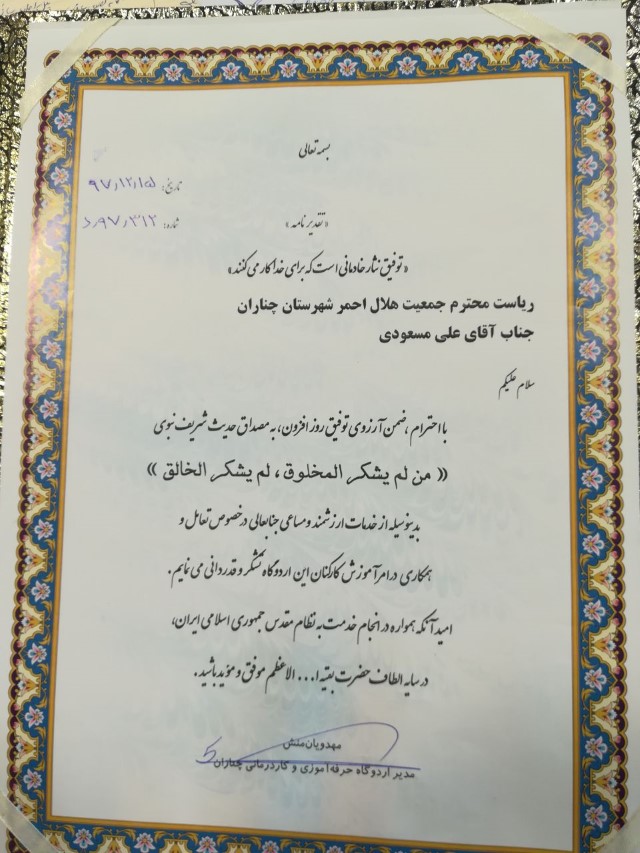 بسمه تعالی
تاریخ: ۹۷/۱۲/۱۵
شماره: ۹۷/۳۱۲/د
«تقدیر نامه»
«توفیق نثار خادمانی است که برای خدا کار می کنند»
ریاست محترم جمعیت هلال احمر شهرستان چناران
جناب آقای علی مسعودی
سلام علیکم
با احترام، ضمن آرزوی توفیق روز افزون، به مصداق حدیث شریف نبوی
« من لم یشکر المخلوق ، لم یشکر الخالق »
بدینوسیله از خدمات ارزشمند و مساعی جنابعالی در خصوص تعامل و
همکاری در امر آموزش کارکنان این اردوگاه تشکر و قدردانی می نمایم.
امید آنکه همواره در انجام خدمت به نظام مقدس جمهوری اسلامی ایران،
در سایه الطاف حضرت بقیه ا... الاعظم موفق و مؤید باشید.
مهدویان‌منش
مدیر اردوگاه حرفه‌آموزی و کاردرمانی چناران